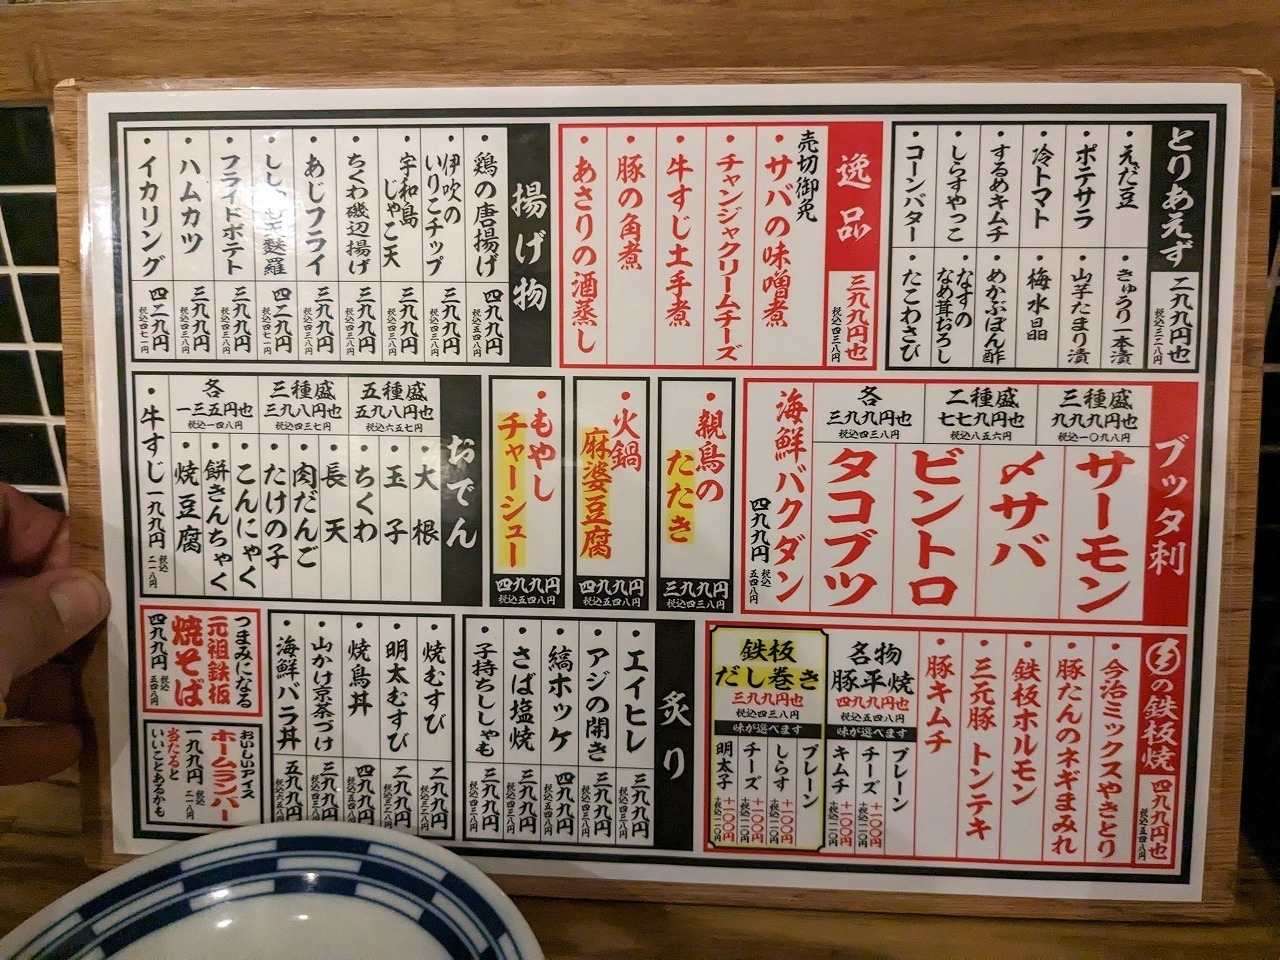 とりあえず
二九九円也
税込三二八円
・えだ豆
・ポテサラ
・冷トマト
・するめキムチ
・しらすやっこ
・コーンバター
・きゅうり一本漬
・山芋たまり漬
・梅水晶
・めかぶぽん酢
・なすの
なめ茸おろし
・たこわさび
逸品
三九九円也
税込四三八円
売切御免
・サバの味噌煮
・チャンジャクリームチーズ
・牛すじ土手煮
・豚の角煮
・あさりの酒蒸し
揚げ物
・鶏の唐揚げ
四九九円
税込五四八円
・伊吹の
いりこチップ
三九九円
税込四三八円
・宇和島
じゃこ天
三九九円
税込四三八円
・ちくわ磯辺揚げ
三九九円
税込四三八円
・あじフライ
三九九円
税込四三八円
四二九円
税込四七一円
・フライドポテト
三九九円
税込四三八円
・ハムカツ
三九九円
税込四三八円
・イカリング
四二九円
税込四七一円
ブッタ刺
三種盛
九九九円也
税込一〇九八円
二種盛
七七九円也
税込八五六円
各
三九九円也
税込四三八円
サーモン
〆サバ
ビントロ
タコブツ
海鮮バクダン
四九九円
税込
五四八円
・親鳥の
たたき
三九九円
税込四三八円
・火鍋
麻婆豆腐
四九九円
税込五四八円
・もやし
チャーシュー
四九九円
税込五四八円
おでん
五種盛
五九八円也
税込六五七円
三種盛
三九八円也
税込四三七円
各
一三五円也
税込一四八円
・大根
・玉子
・ちくわ
・長天
・肉だんご
・たけの子
・こんにゃく
・餅きんちゃく
・焼豆腐
・牛すじ
一九九円
税込
二一八円
の鉄板焼
四九九円也
税込五四八円
・今治ミックスやきとり
・豚たんのネギまみれ
・鉄板ホルモン
・三元豚トンテキ
・豚キムチ
名物
豚平焼
四九九円也
税込五四八円
味が選べます
プレーン
チーズ
+一〇〇円
+税込一一〇円
キムチ
+一〇〇円
+税込一一〇円
鉄板
だし巻き
三九九円也
税込四三八円
味が選べます
プレーン
しらす
+一〇〇円
+税込一一〇円
チーズ
+一〇〇円
+税込一一〇円
明太子
+一〇〇円
+税込一一〇円
炙り
・エイヒレ
三九九円
税込四三八円
・アジの開き
三九九円
税込四三八円
・縞ホッケ
四九九円
税込五四八円
・さば塩焼
三九九円
税込四三八円
・子持ちししゃも
三九九円
税込四三八円
・焼むすび
二九九円
税込三二八円
・明太むすび
二九九円
税込三二八円
・焼鳥丼
四九九円
税込五四八円
・山かけ京茶づけ
三九九円
税込四三八円
・海鮮バラ丼
五九九円
つまみになる
元祖鉄板
焼そば
四九九円
税込
五四八円
おいしいアイス
ホームランバー
一九九円
税込
二一八円
当たると
いいことあるかも